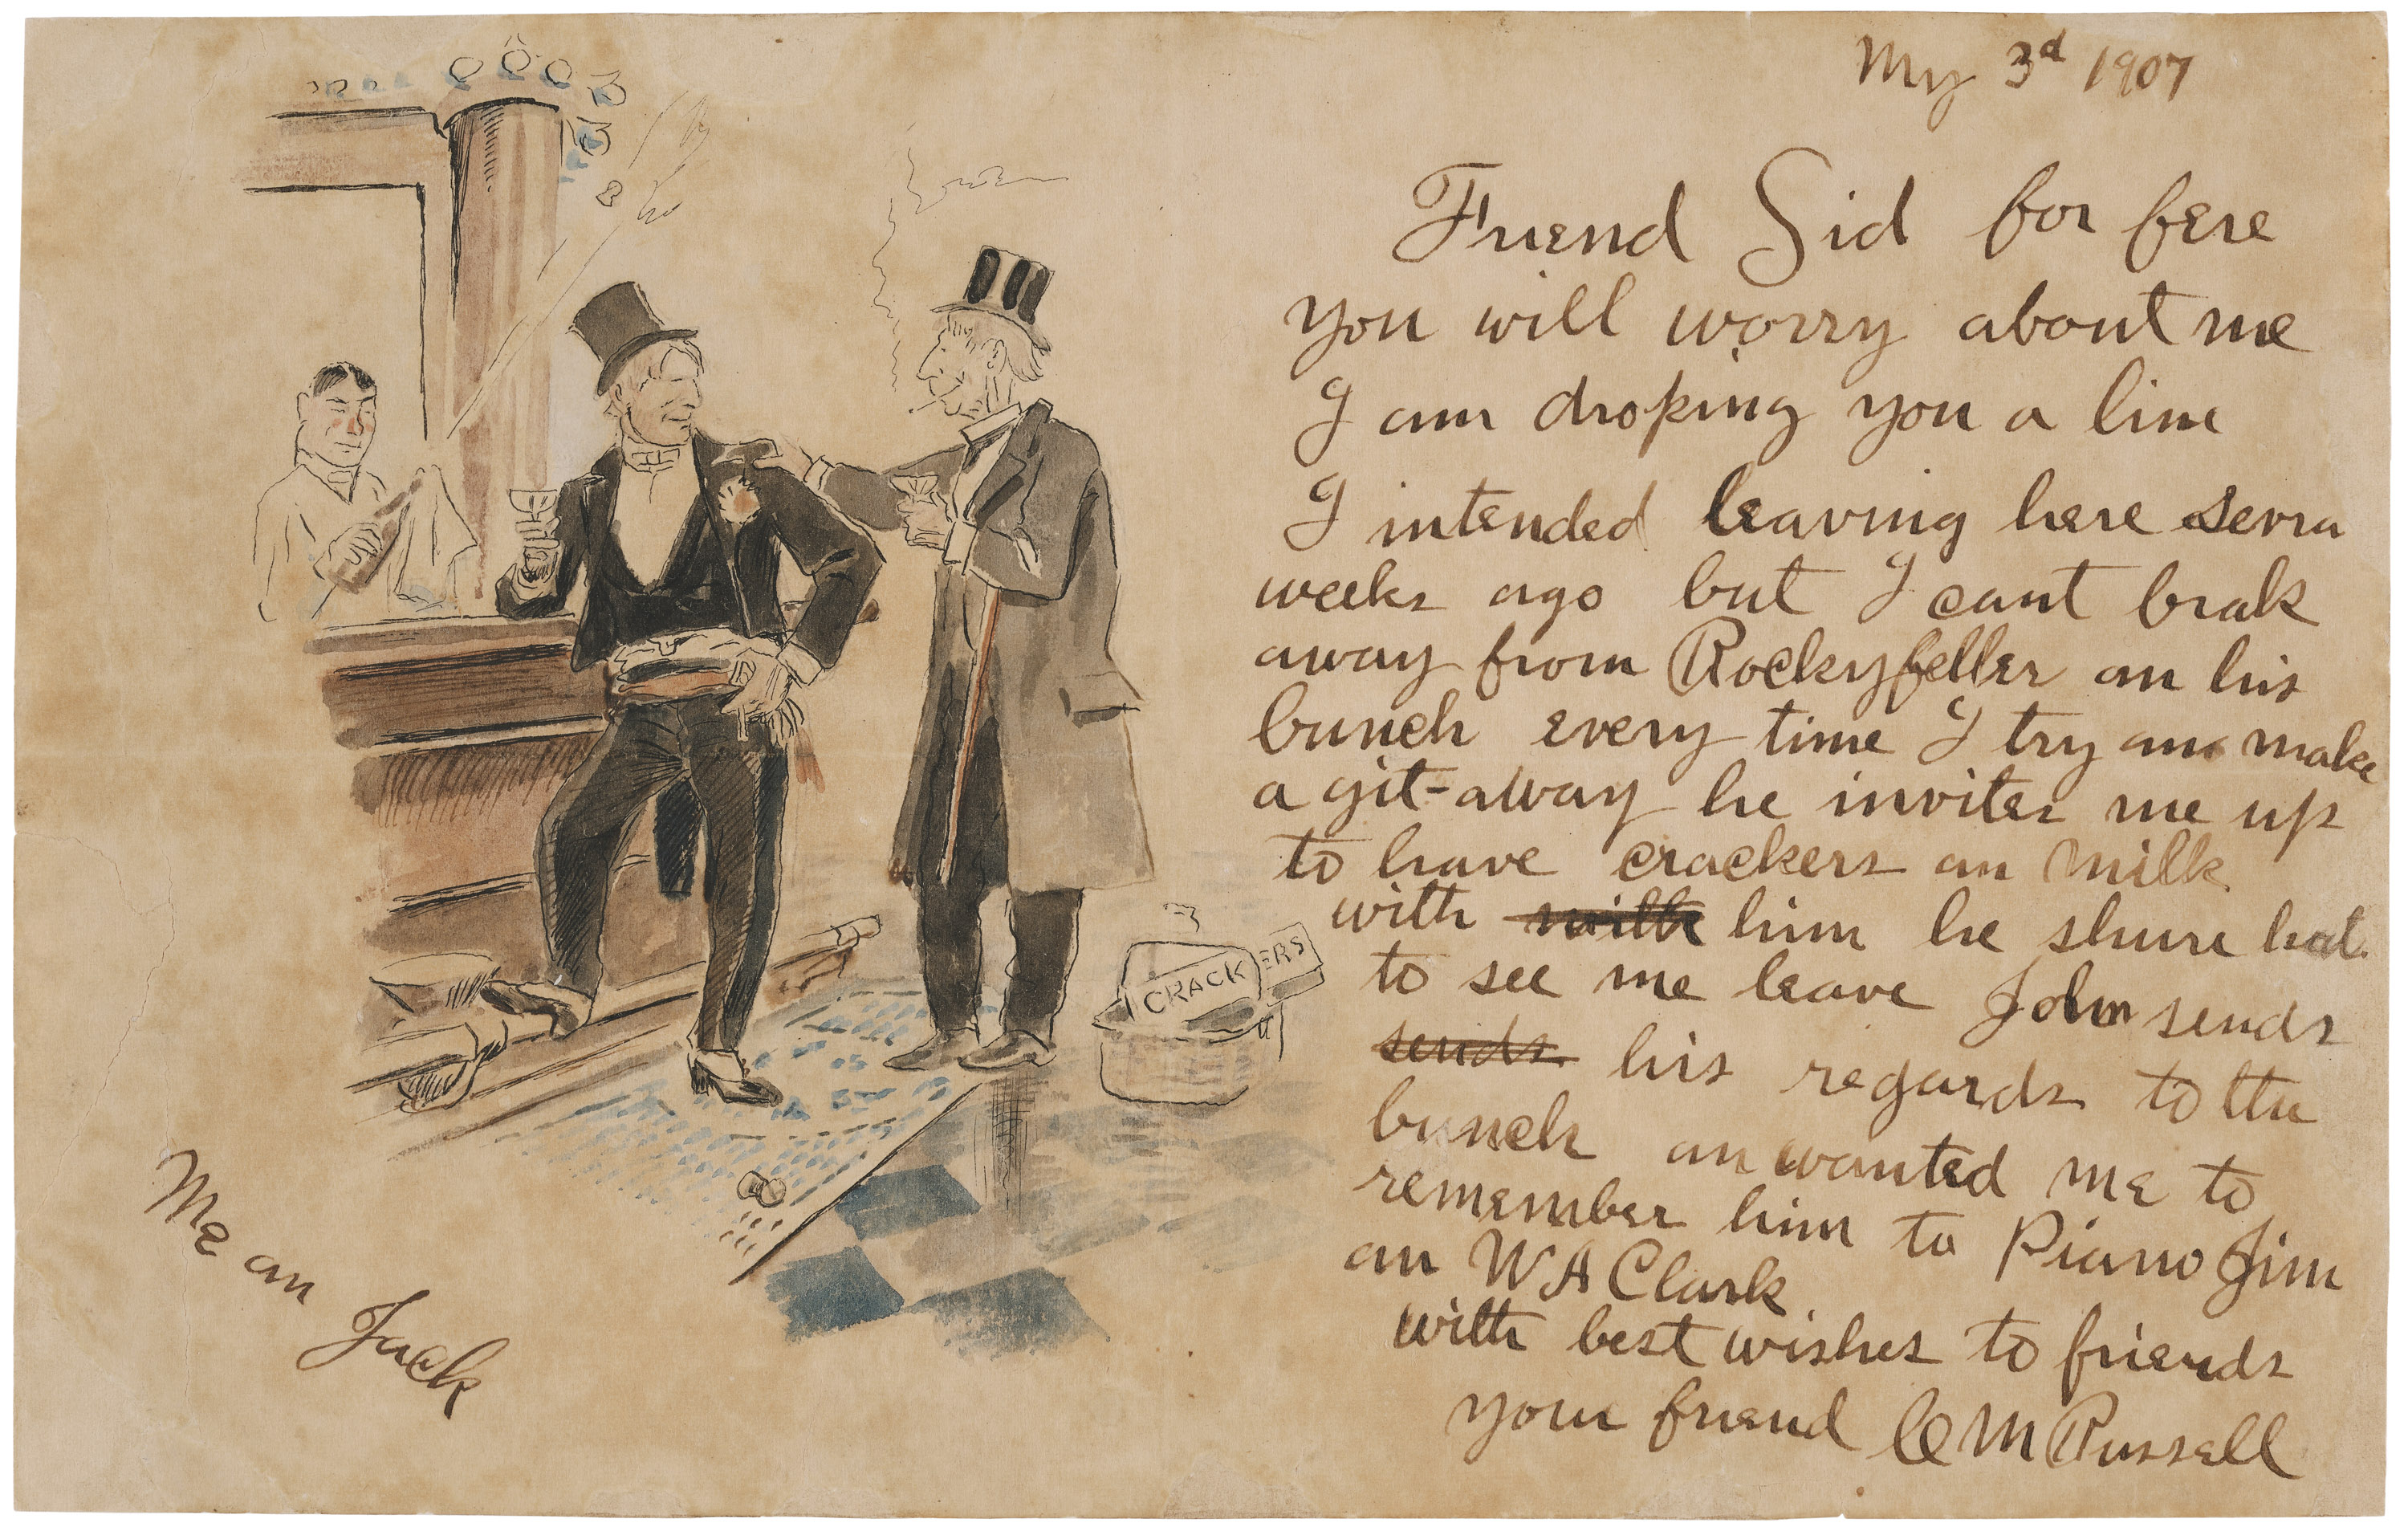 My 3d 1907
Friend Sid for fere
you will worry about me
I am droping you a line
I intended leaving here sevra
weeks ago but I cant brak
away from Rockyfeller an his
bunch every time I try an make
a git-away he invites me up
to have crackers an milk
with milk him he shure hat
to see me leave John sends
sends his regards to the
bunch an wanted me to
remember him to Piano Jim
an W A Clark
with best wishes to friends
your friend C M Russell
CRACKERS
Me an Jack